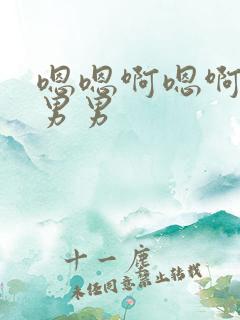 嗯嗯啊嗯啊
男男
十一鹿
未经同意禁止转载